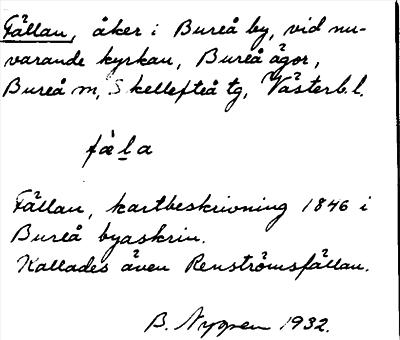 Fällan, åker i Bureå by, vid nu-
varande kyrkan, Bureå ägor,
Bureå m, Skellefteå tg, Västerb.l.
fä̀l̲a
Fällan, kartbeskrivning 1846 i
Bureå byaskrin.
Kallades även Renströmsfällan.
B. Nygren 1932.